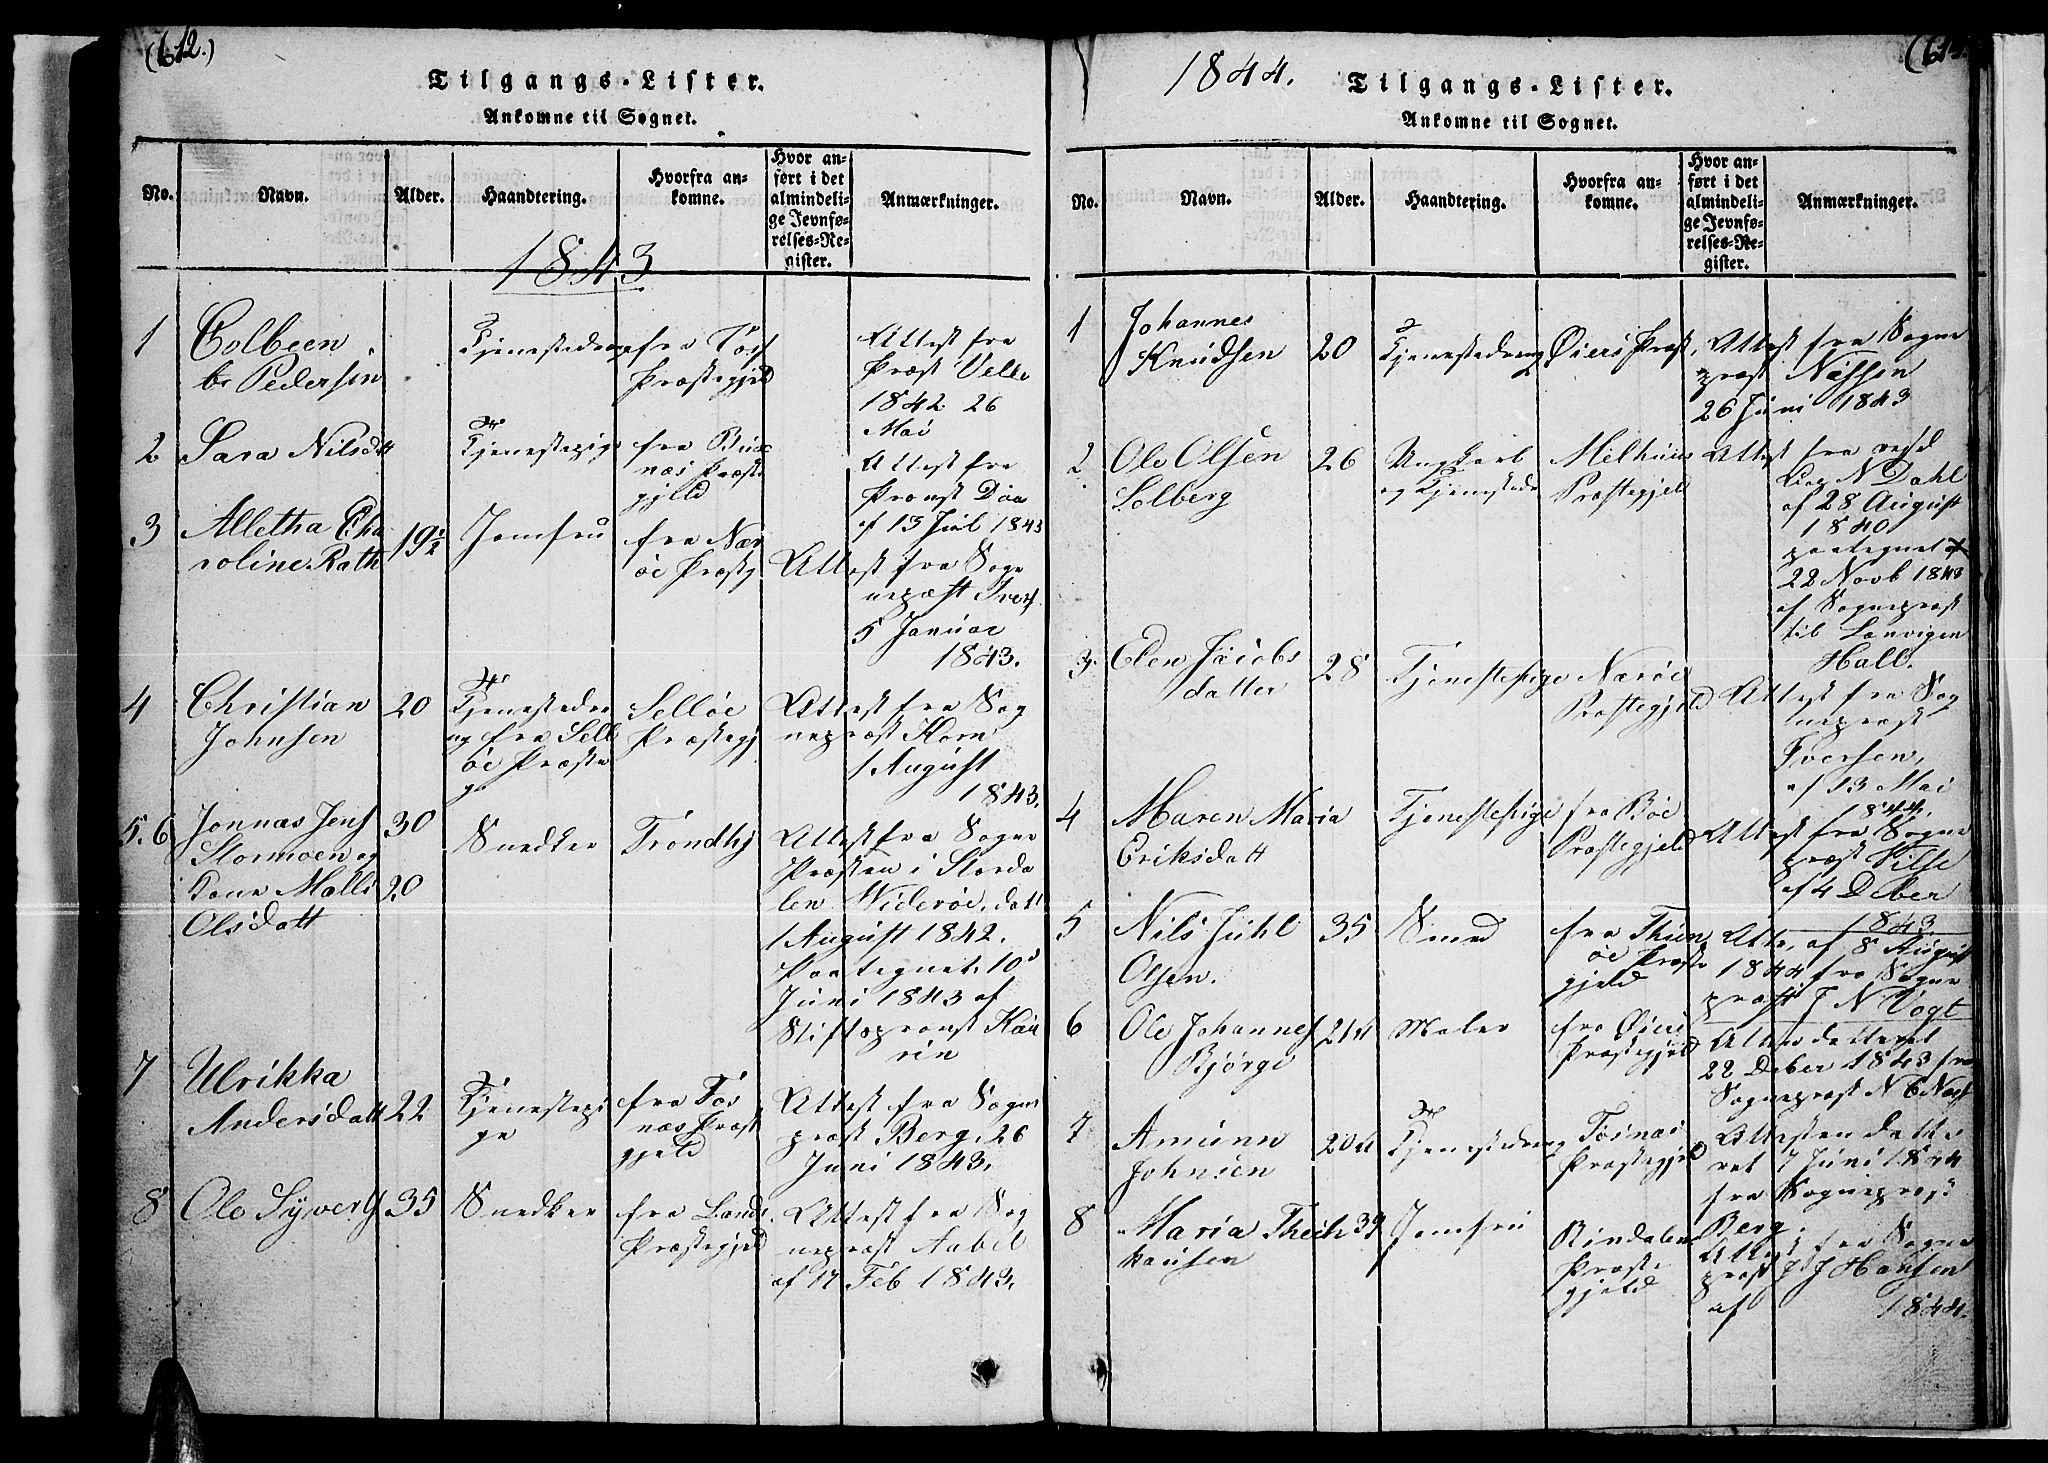 (612.)
Tilgangs-Lister.
Ankomne til Sognet.
No.
Navn.
Alder.
Haandtering.
Hvorfra an-
komne.
Hvor an-
ført i det
almindeli-
ge Jevnfø-
relses-Re-
gister.
Anmærkninger.
1843
1
Colbeen
Pedersen
Tjenestedreng
fra
Præstegjeld
Attest fra
Præst Velle
1842 26
Mai
2
Sara Nilsdtt
Tjenestepige
fra
næs Præste
gjeld
Attest fra
Pronst
af 13 Jul 1843
3
Alletha Cha
roline Rath
19½
Jomfru
fra Nær
öe Præstgj
Attest fra Sogne
5 Januar
1843.
4
Christian
Johnsen
20
Tjenestedre
ng fra Sell
öe Præste
Sellöe
Præstegj
Attest fra Sog
nepræst Horn
1 August
1843.
5. 6
Jonnas Jens
Stormoen og
Kone Malli
Olsdatt
30
20
Snedker
Trondhj
Attest fra Sogne
Præsten i Storda
len Wideröe, dat
1 August 1842.
Paategnet 10
Juni 1843 af
Stiftspronst Kau
rin
7
Ulrikka
Andersdatt
22
Tjenestepi
ge
fra Fos
næs Præst
gjeld
Attest fra Sogne
præst Berg, 26
Juni 1843.
8
Ole Syvers
35
Snedker
fra
Præstegjeld
Attest fra Sog
nepræst Aabel
af 17 Feb 1843.
1844.
Tilgangs-Lister.
Ankomne til Sognet.
No.
Navn.
Alder.
Haandtering.
Hvorfra an-
komne.
Hvor an-
ført i det
almindeli-
ge Jevnfø-
relses-Re-
gister.
Anmærkninger.
1
Johannes
Knudsen
20
Tjenestedreng
Öiers Præst.
Attest fra Sogne
præst Nassen
26 Juni 1843
2
Ole Olsen
Solberg
26
Ungkarl
og Tjenestedr
Melhuus
Præstegjeld
Attest fra
Cap N Dahl
af 28 August
1840
paategnet
22 Novb 1843
af Sognepræst
til
Hall.
3.
Elen Jacobs
datter
28
Tjenestepige
Næröe
Præstegjeld
Attest fra Sog
nepræst
Iversen,
af 13 Mai
1844.
4
Maren Maria
Eriksdatt
Tjenestepige
fra Böe
Præstegjeld
Attest fra Sogne
præst
af 4 Deber
1843.
5
Nils Juhl
Olsen.
35
Smed
fra
öe Præste
gjeld
Att. af 8 August
1844 fra Sogne
præst J N Vogt
6
Ole Johannes
Björge
Maler
fra Öiers
Præstegjeld
Atten datteret
22 Deber 1843 fra
Sognepræst N
7
Amunn
Johnsen
Tjenestedreng
Fosnæs
Præstegjeld
Attesten datte
ret 7 Juni 1844
fra Sognepræst
Berg
8
Maria Thesh
hausen
39
Jomfru
Bindalen
Præste
gjeld
Attest fra Sogne
præst J J Hansen
af
1844.